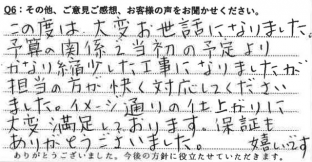 Q6:その他、ご意見ご感想、お客様の声をお聞かせください。
この度は大変お世話になりました。
予算の関係で当初の予定より
かなり縮少した工事になりましたが
担当の方が快く対応してください
ました。イメージ通りの仕上がりに
大変満足しております。保証も
ありがとうございました。 嬉しいです
ありがとうございました。今後の方針に役立たせていただきます。